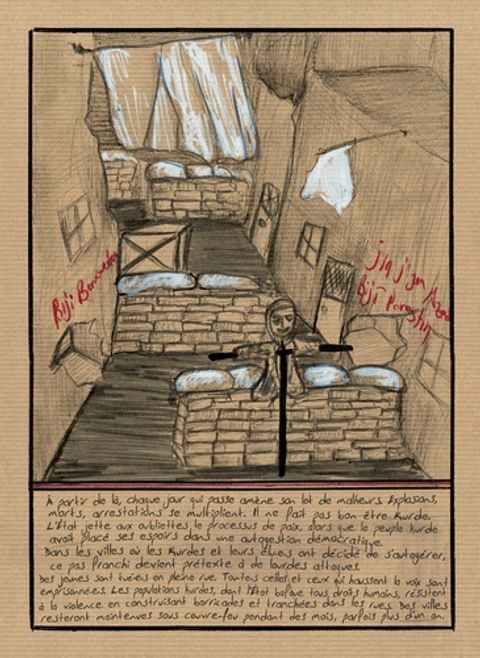 Biji Berxwedan
Biji
À partir de là, chaque jour qui passe amène son lot de malheurs. Explosions,
morts, arrestations se multiplient. Il ne fait pas bon être Kurde.
L'État jette aux oubliettes le processus de paix, alors que le peuple kurde
avait placé ses espoirs dans une autogestion démocratique.
Dans les villes où les Kurdes et leurs élu.es ont décidé de s'autogérer,
ce pas franchi devient prétexte à de lourdes attaques.
Des jeunes sont tué.es en pleine rue. Toutes celles et ceux qui haussent la voix sont
emprisonné.es. Les populations kurdes, dont l'État bafoue tous droits humains, résistent
à la violence en construisant barricades et tranchées dans les rues. Des villes
resteront maintenues sous couvre-feu pendant des mois, parfois plus d'un an.